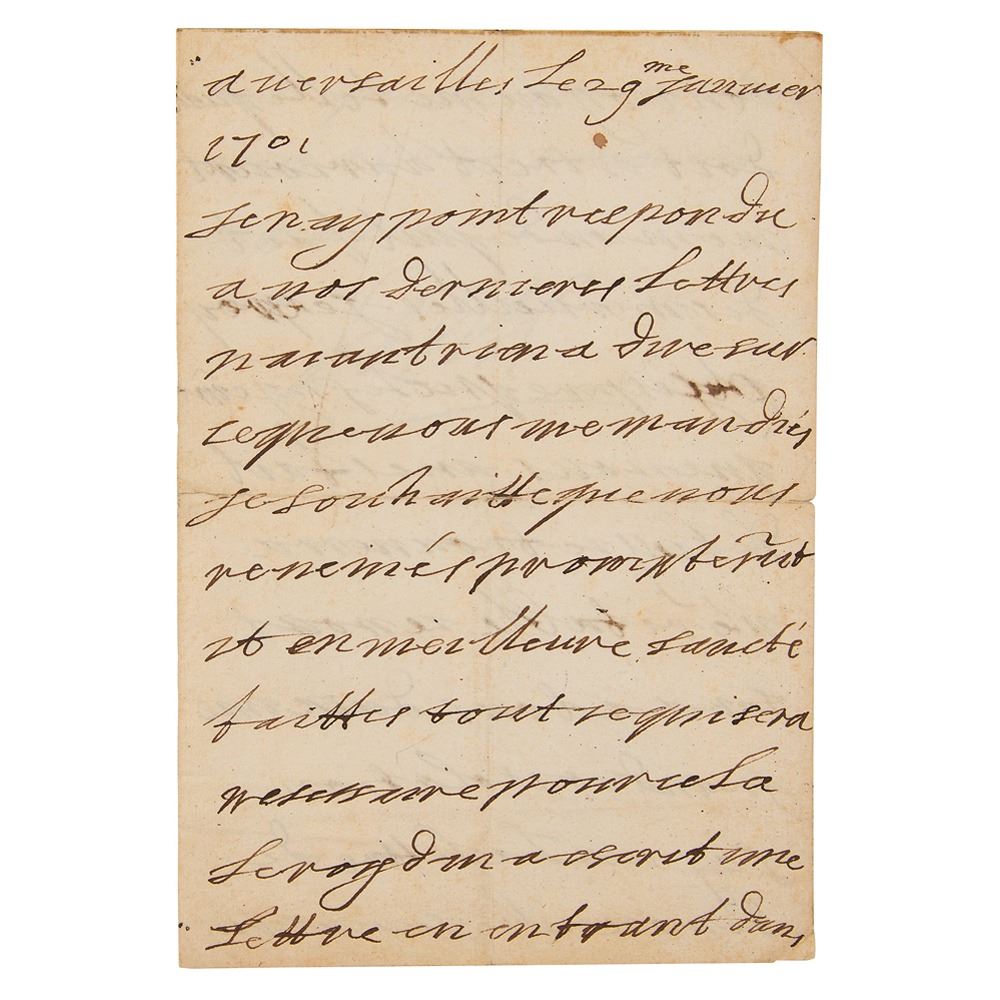 a versailles le 29me janvier
1701
je nay point respondu
a vos dernieres lettres
naiant rien a dire sur
ce que vous me mandiés
je souhaitte que vous
renemés promptemt
et en meilleure sancté
faittes tout ce qui sera
nesessaire pour cela
le roy dm a escrit une
lettre en entrant dans